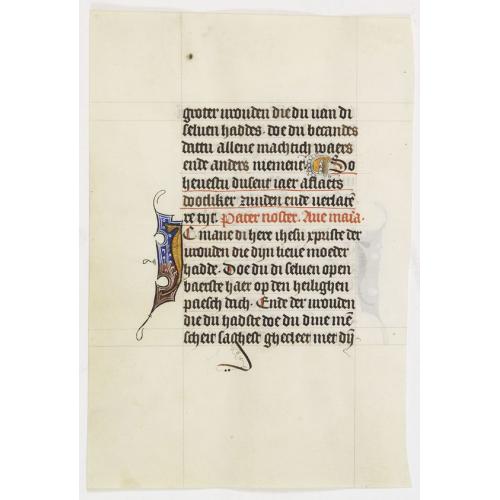 groter vrouden die du van di
seluen haddes. doe du becandes
dattu allene machtich waers
ende anders niement. So
henestu dusent iaer aflaets
dootliker zunden ende verlatē
re tijt. Pater noster. Aue maria.
C mane di here ihesu xpriste der
vrouden die dijn lieue moeder
hadde. Doe du di seluen open
baerste haer op den heilighen
paesch dach. Ende der vrouden
die du hadste doe du dine mē
scheit saghest ghecleet met dy